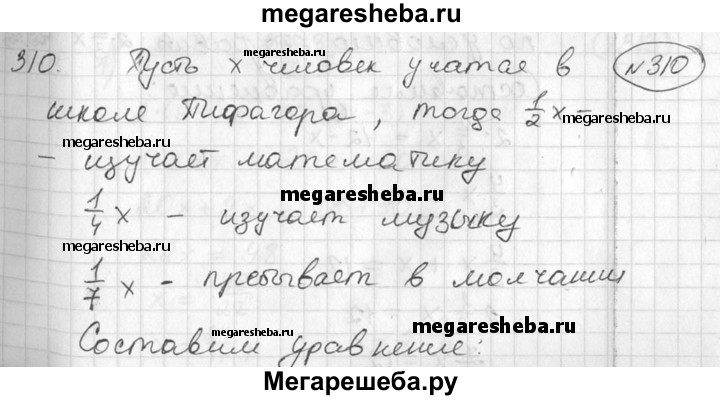 megaresheba.ru
310. Пусть x человек учатся в №310
megaresheba.ru
школе Пифагора, тогда 1/2 x =
megaresheba.ru megaresheba.ru
- изучает математику
megaresheba.ru
1/4 x - изучает музыку
megaresheba.ru
1/7 x - пребывает в молчании
megaresheba.ru megaresheba.ru
Составим уравнение:
Мегарешеба.ру